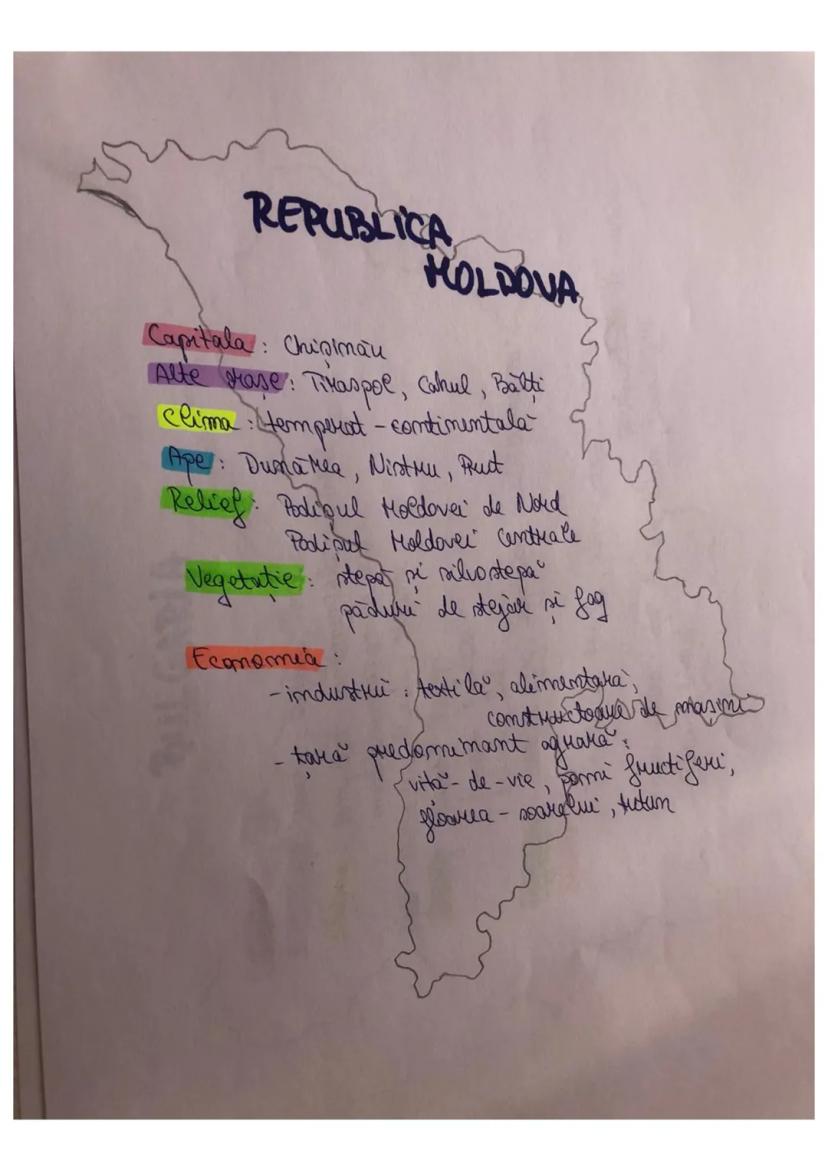 REPUBLICA
MOLDOVA
Capitala : Chișinău
Alte orașe : Tiraspol, Cahul, Bălți
Clima : temperat - continentală
Ape : Dunărea, Nistru, Prut
Relief : Podișul Moldovei de Nord
Podișul Moldovei Centrale
Vegetație : stepă și silvostepă
păduri de stejar și fag
Economia :
- industrii : textilă, alimentară,
constructoare de mașini
- țară predominant agrară :
viță - de - vie, pomi fructiferi,
floarea - soarelui, tutun